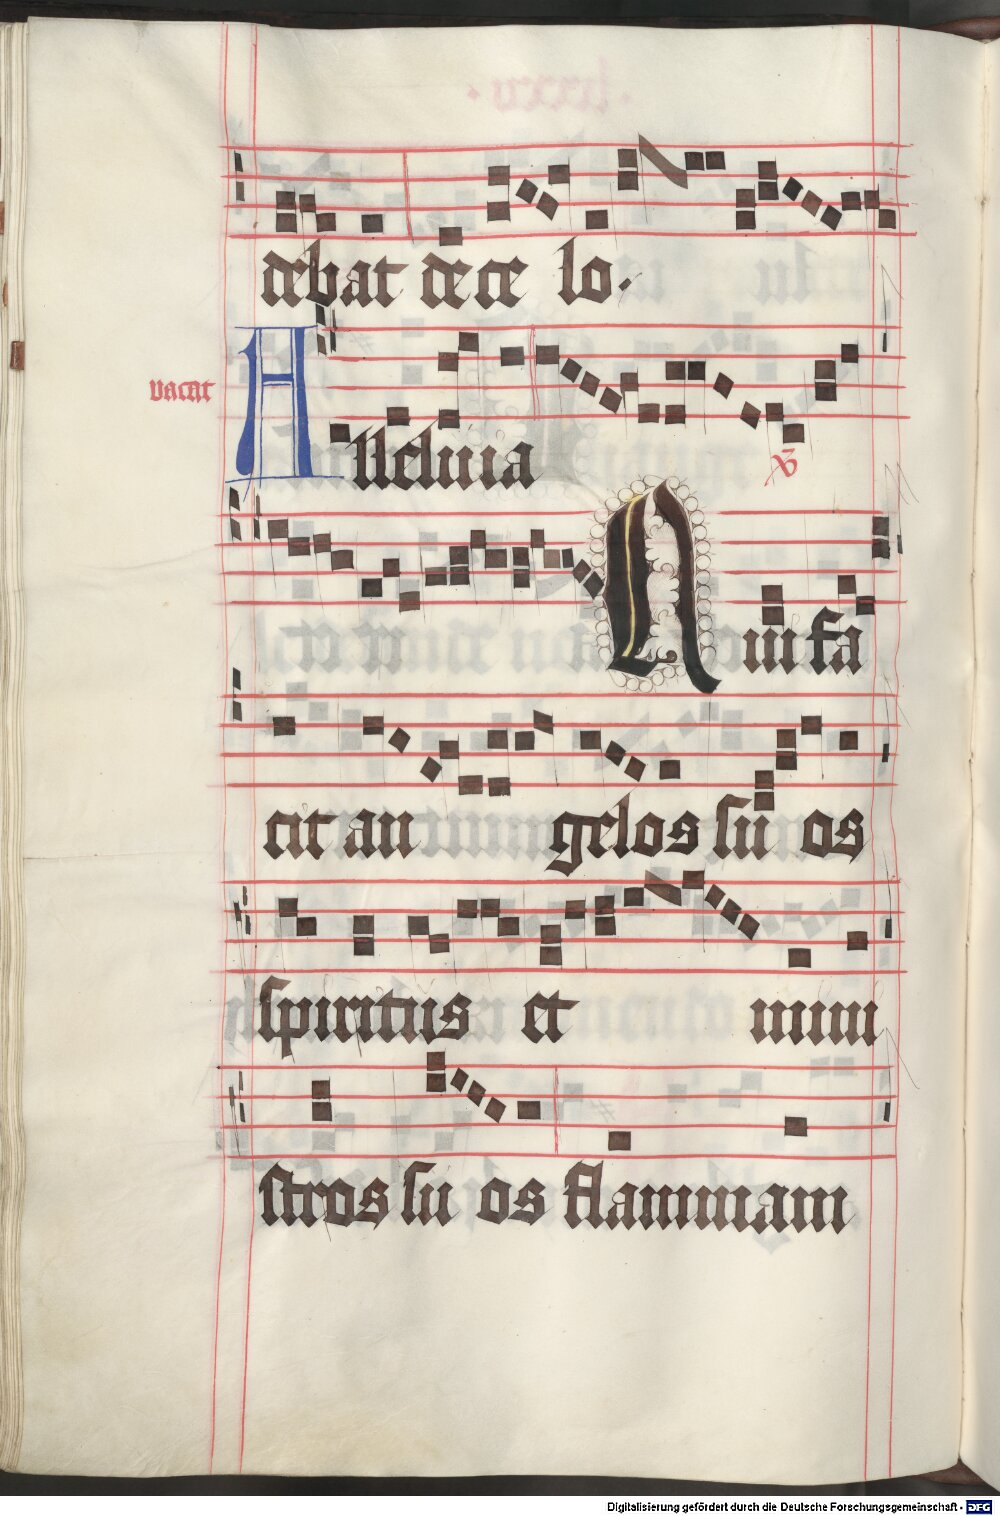 debat de ce lo.
vacat
Alleluia
℣
Qui fa
cit an gelos su os
spiritus et mini
stros su os flammam
Digitalisierung gefördert durch die Deutsche Forschungsgemeinschaft - DFG